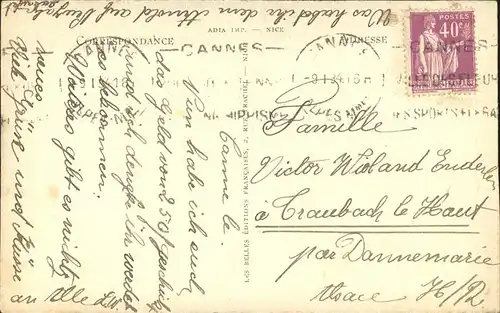 Was habt ihr dem Arnold auf Neujahr
gekauft
ADIA IMP. - NICE
CORRESPONDANCE
ADRESSE
CANNES
POSTES
40c
Canne le
Nun habe ich euch
das Geld von 250 geschickt
und ich denke ihr werdet
es bekommen.
Weiteres gibt es nichts
neues
Viele Grüße und Küsse
an Alle
LES BELLES ÉDITIONS FRANÇAISES, 2, RUE
Famille
Victor Wieland Enderlen
à Traubach le Haut
par Dannemarie
Alsace H/R